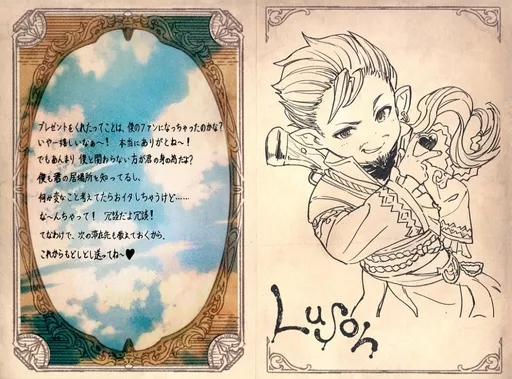 プレゼントをくれたってことは、僕のファンになっちゃったのかな?
いやー嬉しいなぁ〜! 本当にありがとね〜!
でもあんまり 僕と関わらない方が君の身の為だよ?
僕も君の居場所を知ってるし、
何か変なこと考えてたらおイタしちゃうけど……
な〜んちゃって! 冗談だよ冗談!
てなわけで、次の滞在先も教えておくから、
これからもどしどし送ってね〜♥
Luson